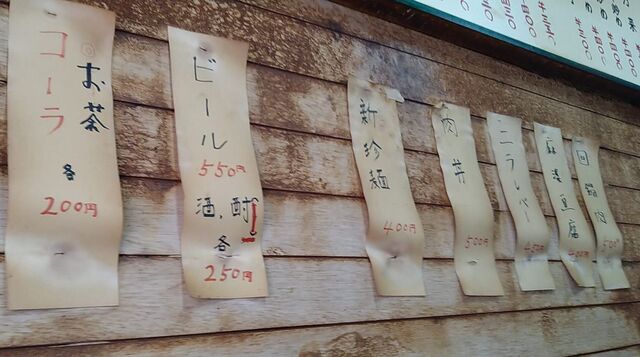 コーラ
お茶
各
200円
ビール
550円
酒,酎
各
250円
新珍麺
400円
肉丼
500円
ニラレバー
450円
麻婆豆腐
400円
回鍋肉
500円